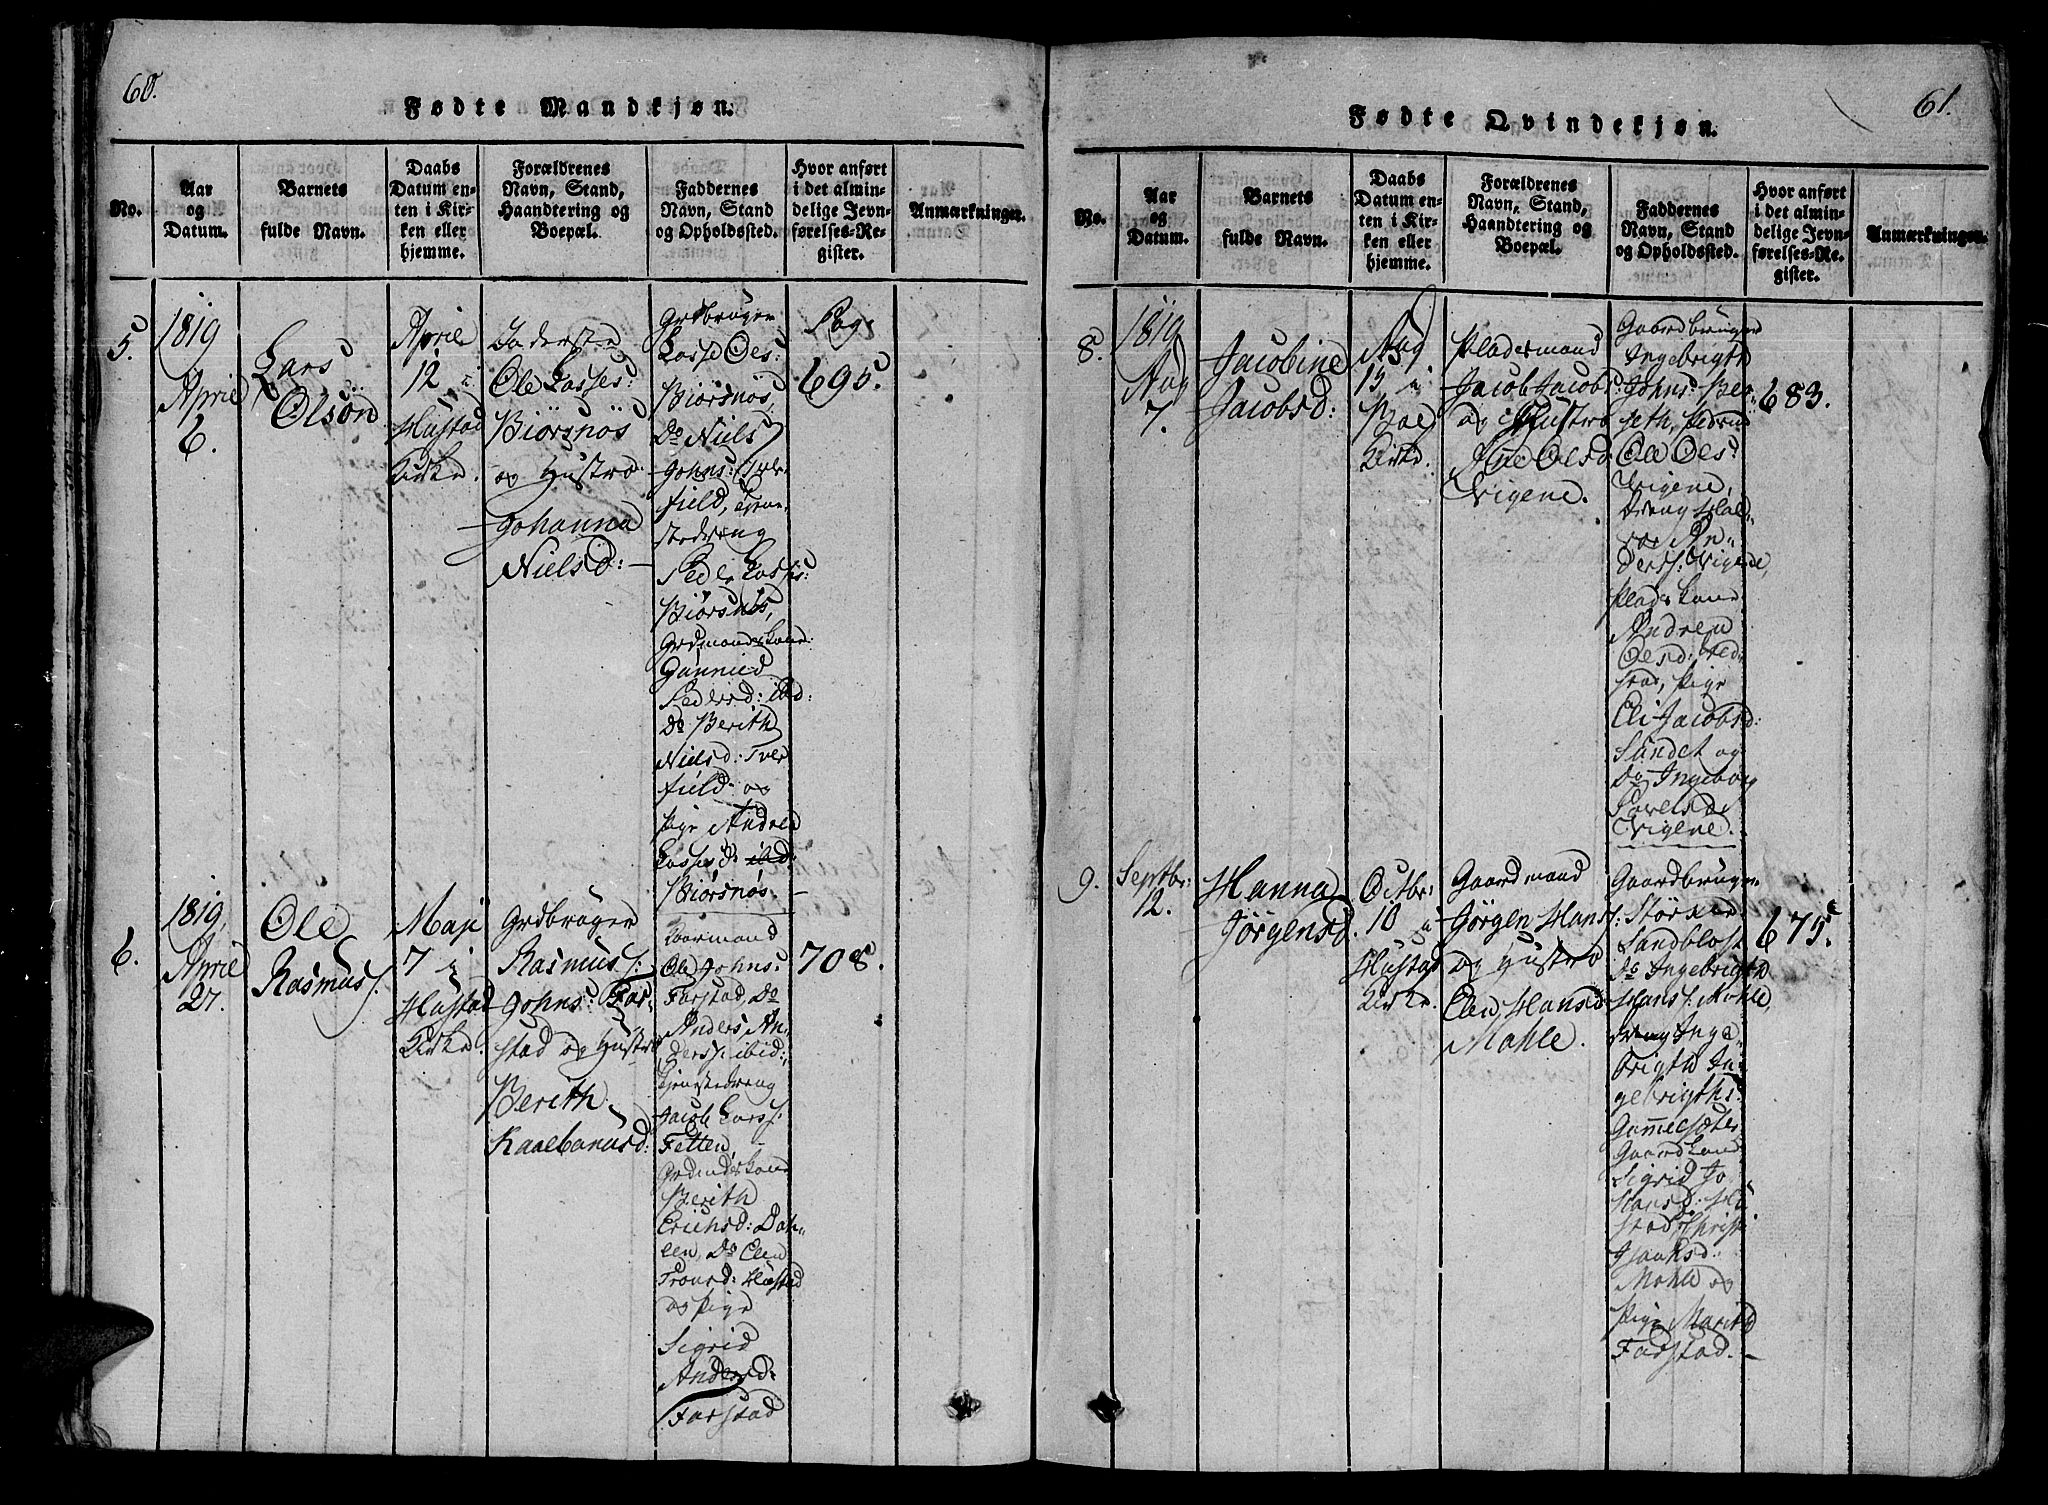 60.
Fødte Mandkjøn.
No.
Aar
og
Datum.
Barnets
fulde Navn.
Daabs
Datum en-
ten i Kir-
ken eller
hjemme.
Forældrenes
Navn, Stand,
Haandtering og
Boepæl.
Faddernes
Navn, Stand
og Opholdssted.
Hvor anført
i det almin-
delige Jevn-
førelses-Re-
gister.
Anmærkninger.
5.
1819
April
6.
Lars
Olsön
April
12 i
Hustad
Kirke.
Inderste
Ole Lasses:
Biörsnös
og Hustro
Johanna
Nielsd:
Grdbruger
Lasse Oles:
Biörsnös,
Do Niels
Johns: Tver
field,
Peder Lasses:
Biörsnös,
Grdmandskone
Gunnild
Pedersd: ibid:
Do Berith
Nielsd: Tver
field og
Pige Andrea
Lassesd: ibid:
Biörsnös
Pag:
695.
6.
1819,
April
27.
Ole
Rasmuss.
Maji
7 i
Hustad
Kirke.
Grdbruger
Rasmus
Johns: Far-
stad og Hustro
Berith
Kaalbanusd:
Ole Johns:
Farstad, Do
Anders An-
derss: ibid:,
Tjenstedreng
Jacob Larss:
Fetten,
Grdmdskone
Berith
Erichsd: Dah-
len, Do Elen
Tronsd: Hustad
og Pige
Sigrid
Andersd:
Farstad
708.
61.
Fødte Qvindekjøn.
No.
Aar
og
Datum.
Barnets
fulde Navn.
Daabs
Datum en-
ten i Kir-
ken eller
hjemme.
Forældrenes
Navn, Stand,
Haandtering og
Boepæl.
Faddernes
Navn, Stand
og Opholdssted.
Hvor anført
i det almin-
delige Jevn-
førelses-Re-
gister.
Anmærkninger.
8.
1819
Aug
7.
Jacobine
Jacobsd:
Aug
15 i
Boe
Kirke.
Pladsmand
Jacob Jacobs:
og Hustro
Ane Olsd
Vigene.
Gaardbruger
Ingebrigt
Johns:
Ole Oles:
Vigene,
Dreng Hal-
vor An-
derss: Vigene,
Pladskone
Andrea
Olsd:
stad, Pige
Eli Jacobsd:
Sundet og
Do Ingeborg
Povelsd:
Vigene.
683.
9.
Septbr:
12.
Hanna
Jörgensd.
Octbr:
10 i
Hustad
Kirke.
Gaardmand
Jörgen Hans:
og Hustro
Elen Hansd
Mahle.
Gaardbruger
Störker
Sandblost
Do Ingebrigt
Hans: Mahle,
Dreng Inge-
brigt In-
gebrigths:
Gammelsæter
Gaardkone
Sigrid Jo
hansd: Hu
stad, Christi
Isaaksd:
Mahle og
Pige Marith
Farstad.
675.